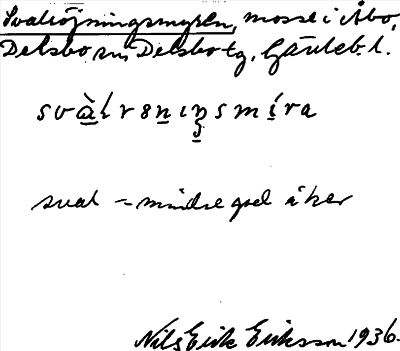 Svalröjningsmyren, mosse i Åbo,
Delsbo sn Delsbo tg. Gävleb. l.
svàlrönıŋsmíra
sval = mindre god åker
Nils Erik Eriksson 1936.